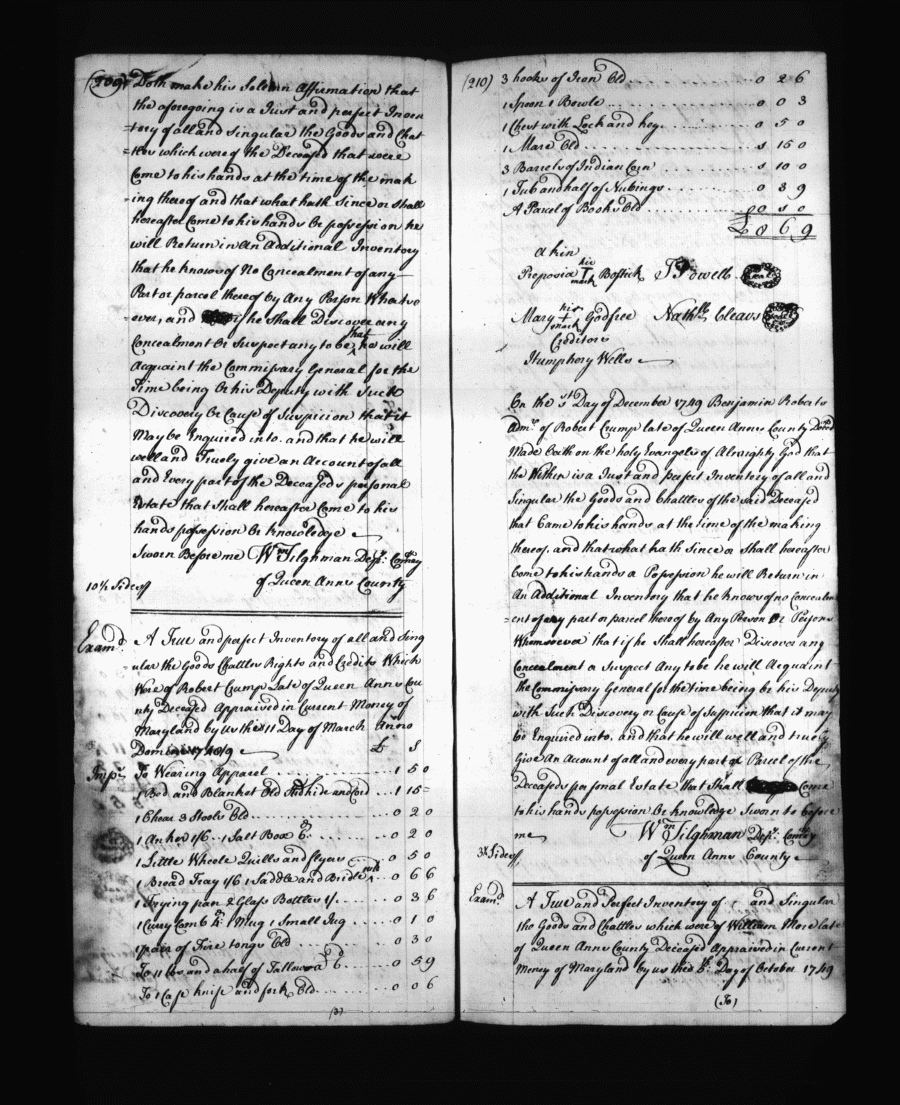 (209) Doth make his Solemn Affirmation that
the aforegoing is a Just and perfect Inven
=tory of all and Singular the Goods and Chat
=tles which were of the Deceased that were
Come to his hands at the time of the mak
ing thereof and that what hath Since or Shall
hereafter Come to his hands Or possession he
will Return in An Additional Inventory
that he knows of No Concealment of any
Part or parcel thereof by Any Person Whatso
ever, and if he Shall Discover any
Concealment Or Suspect any to be, that he will
Acquaint the Commissary General for the
Time being Or his Deputy with Such
Discovery Or Cause of Suspicion that it
May be Enquired into. and that he will
well and Truely give an Account of all
and Every part of the Deceaseds personal
Estate that Shall hereafter Come to his
hands possession Or knowledge
Sworn Before me Wm Tilghman Depy. Comry
of Queen Anns County
10½ Sides
Examd. A True and perfect Inventory of all and Sing
=ular the Goods Chattles Rights and Credits Which
Were of Robert Crump Late of Queen Anns Cou
nty Deceased Appraised in Current Money of
Maryland by us this 11 Day of March Anno
Domini 1748/9 £ S
Imps. To Wearing Apparel 1 5 0
1 Bed and Blanket Old Hide and Cord 1 15=
1 Chear 3 Stools Old 0 2 0
1 Anker 1/6 1 Salt Box 6d 0 2 0
1 Little Wheele Quills and flyers 0 5 0
1 Bread Tray 1/6 1 Saddle and Bridle 0 6 6
1 Frying pan 2 Glass Bottles 1/. 0 3 6
1 Curry Comb 1 Mug 1 Small Jug 0 1 0
1 pair of Fire tongs Old 0 3 0
To 11 lbs and a half of Tallow a 6d 0 5 9
To 1 Case knife and fork Old 0 0 6
(3)
(210) 3 hooks of Iron Old 0 2 6
1 Spoon 1 Bowle 0 0 3
1 Chest with Lock and key 0 5 0
1 Mare Old S 15 0
3 Barrels of Indian Corn S 10 0
1 Tub and half of Nubings 0 3 9
A Parcel of Books Old 0 S 0
£ 8 6 9
a kin
Preposia his T mark Bostick J Powell Seal
Mary his + mark Godfree Nathll Cleavs Seal
Creditors
Humphory Wells
On the Day of December 1749 Benjamin Roberts
Admr. of Robert Crump late of Queen Anns County Decd
Made Oath on the holy Evangels of Almighty God that
the Within is a Just and perfect Inventory of all and
Singular the Goods and Chattles of the said Deceased
that Came to his hands at the time of the making
thereof. and that what hath Since or Shall hereafter
Come to his hands or Possession he will Return in
An Additional Inventory that he knows of no Concealm
=ent of any part or parcel thereof by Any Person Or Persons
Whomsoever that if he Shall hereafter Discover any
Concealment or Suspect Any to be he will Acquaint
the Commissary General for the time being or his Deputy
with Such Discovery or Cause of Suspicion that it may
be Enquired into. and that he will well and truely
Give An Account of all and every part or Parcel of the
Deceaseds personal Estate that Shall Come
to his hands possession Or knowledge Sworn to before
me Wm Tilghman Depy. Comry
of Queen Anns County
3¼ Sides
Examd. A True and Perfect Inventory of and Singular
the Goods and Chattles which were of William More late
of Queen Anns County Deceased Appraised in Current
Money of Maryland by us this Day of October 1749
(To)